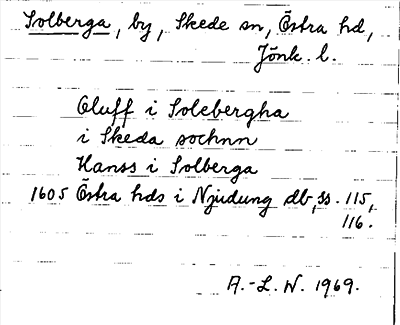 Solberga, by, Skede sn, Östra hd,
Jönk. l.
Oluff i Solebergha
i Skeda sochnn
Hanss i Solberga
1605 Östra hds i Njudung db, ss. 115,
116.
A.-L. W. 1969.